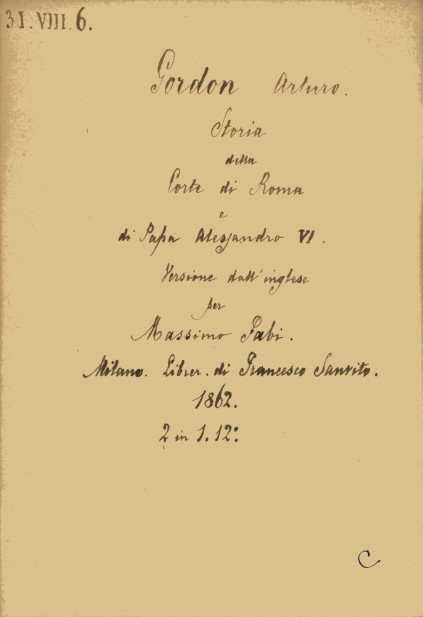 31.VIII.6.
Gordon Arturo.
Storia
della
Corte di Roma
e
di Papa Alessandro VI.
Versione dall'inglese
per
Massimo Fabi.
Milano. Librer. di Francesco Sanvito.
1862.
2 in 1. 12º.
C